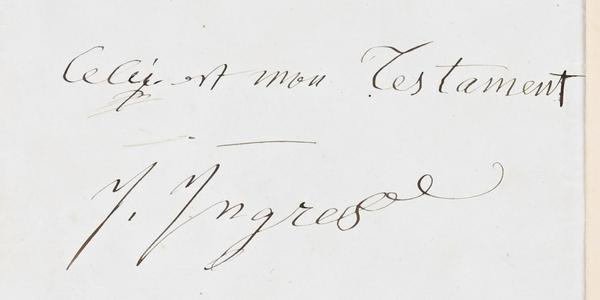 Ceci est mon Testament
J. Ingres